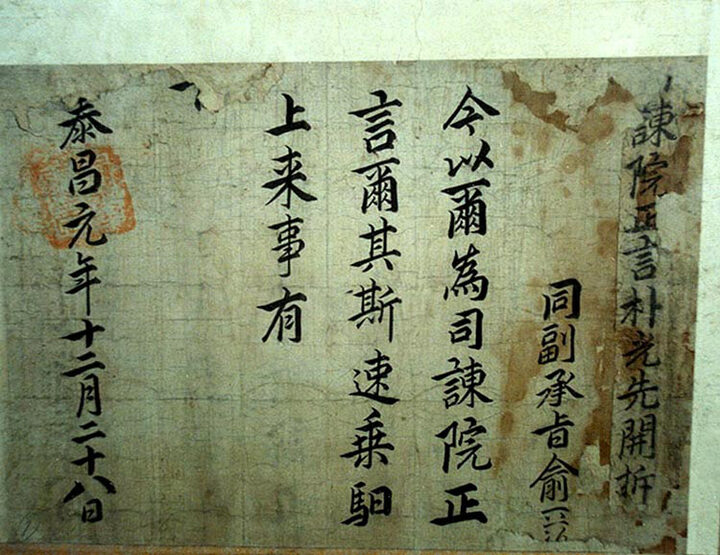 諫院正言朴光先開拆
同副承旨俞
今以爾為司諫院正
言爾其斯速乗馹
上来事有
泰昌元年十二月二十八日